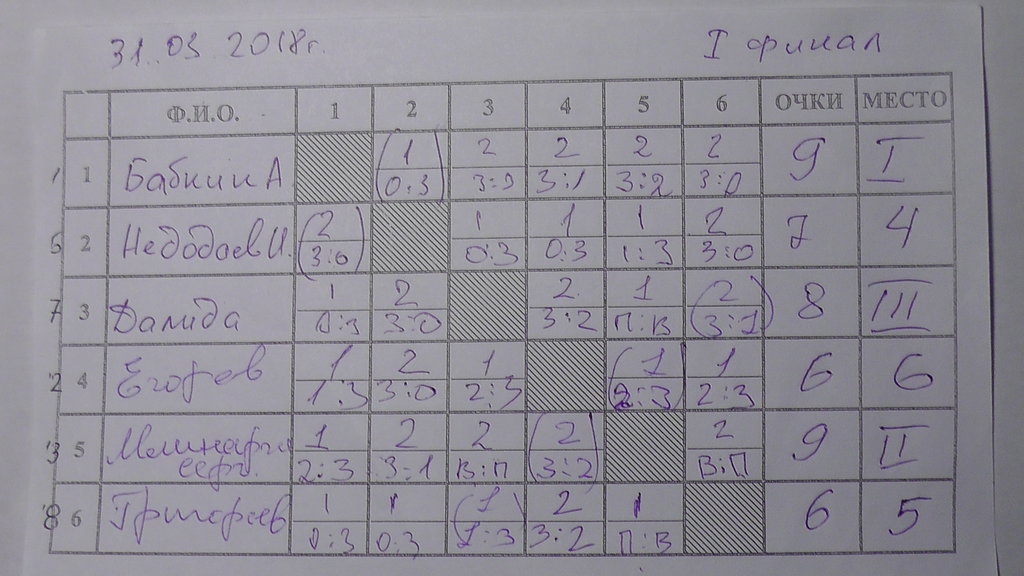 31.03 2018г. I финал
Ф.И.О. 1 2 3 4 5 6 ОЧКИ МЕСТО
1 1 Бабкин А 1 2 2 2 2 9 I
0:3 3:0 3:1 3:2 3:0
5 2 Недодаев И. 2 1 1 1 2 7 4
3:0 0:3 0:3 1:3 3:0
7 3 Далида 1 2 2 1 2 8 III
0:3 3:0 3:2 П:В 3:1
2 4 Егоров 1 2 1 1 1 6 6
1:3 3:0 2:3 2:3 2:3
3 5 1 2 2 2 2 9 II
2:3 3:1 В:П 3:2 В:П
8 6 Григорьев 1 1 1 2 1 6 5
0:3 0:3 1:3 3:2 П:В